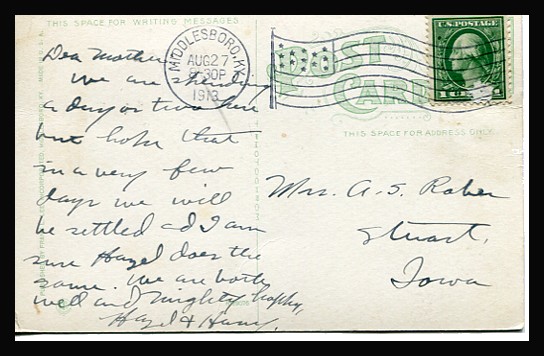 THIS SPACE FOR WRITING MESSAGES
Dear Mother
We are spending
a day or two here
but hope that
in a very few
days we will
be settled and I am
sure Hazel does the
same. We are both
well and mighty happy,
Hazel & Harry.
MIDDLESBORO, KY.
AUG 27
30P
1913
POST
CARD
U.S. POSTAGE
1
THIS SPACE FOR ADDRESS ONLY
Mrs. A. S. Raber
Stuart,
Iowa